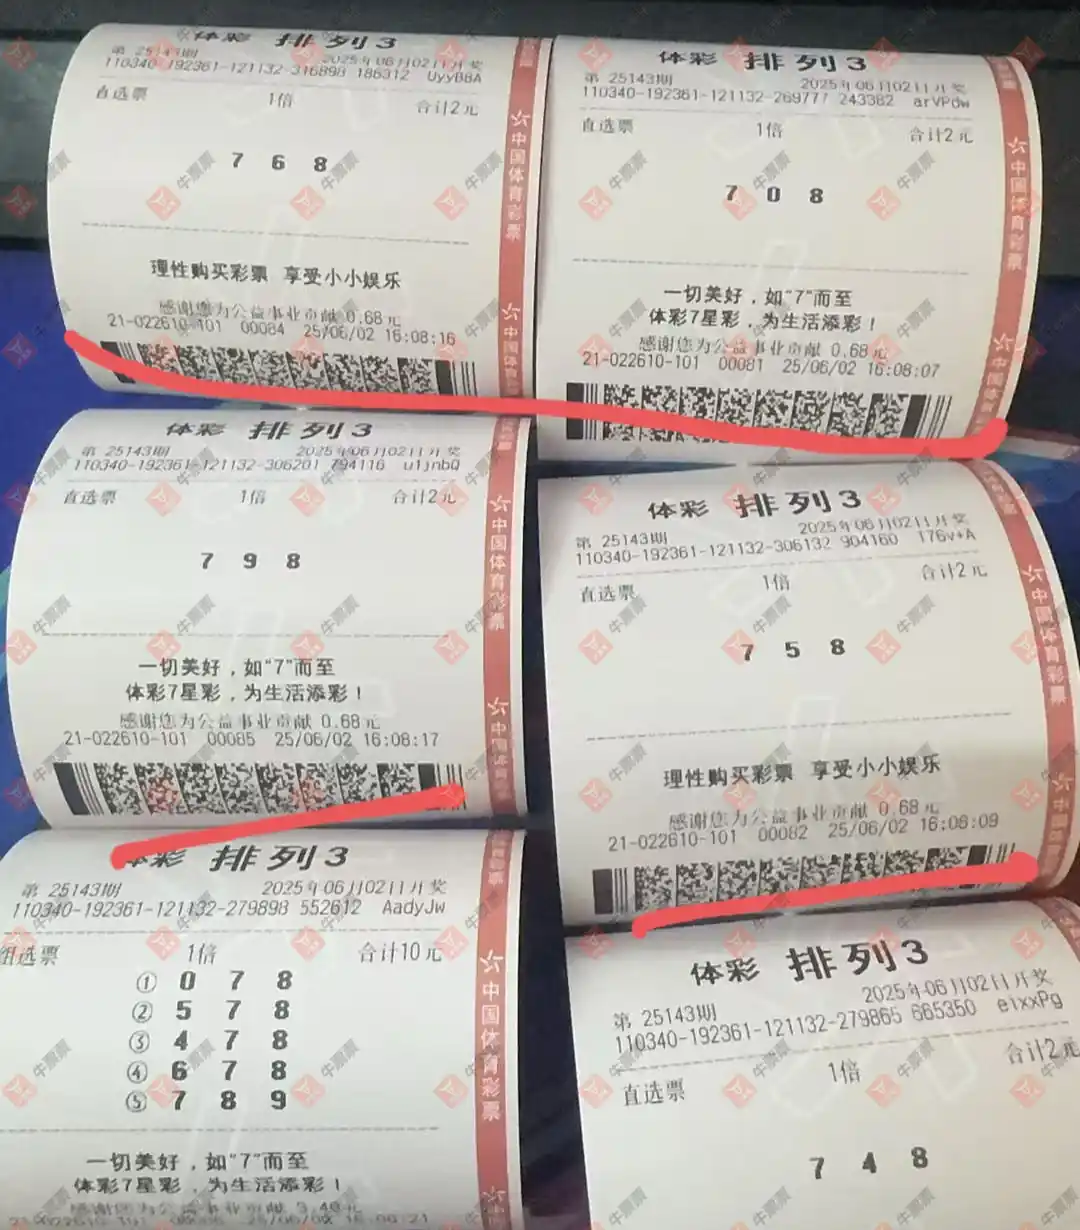 体彩 排列3
第 25143期 2025年06月02日开奖
110340-192361-121132-316898 186312 UyyB8A
直选票 1倍 合计2元
7 6 8
理性购买彩票 享受小小娱乐
感谢您为公益事业贡献 0.68元
21-022610-101 00084 25/06/02 16:08:16
中国体育彩票
体彩 排列3
第 25143期 2025年06月02日开奖
110340-192361-121132-269777 243382 arVPdw
直选票 1倍 合计2元
7 0 8
一切美好，如“7”而至
体彩7星彩，为生活添彩！
感谢您为公益事业贡献 0.68元
21-022610-101 00081 25/06/02 16:08:07
中国体育彩票
体彩 排列3
第 25143期 2025年06月02日开奖
110340-192361-121132-306201 794116 u1jnbQ
直选票 1倍 合计2元
7 9 8
一切美好，如“7”而至
体彩7星彩，为生活添彩！
感谢您为公益事业贡献 0.68元
21-022610-101 00085 25/06/02 16:08:17
中国体育彩票
体彩 排列3
第 25143期 2025年06月02日开奖
110340-192361-121132-306132 904160 176v+A
直选票 1倍 合计2元
7 5 8
理性购买彩票 享受小小娱乐
感谢您为公益事业贡献 0.68元
21-022610-101 00082 25/06/02 16:08:09
中国体育彩票
体彩 排列3
第 25143期 2025年06月02日开奖
110340-192361-121132-279898 552612 AadyJw
组选票 1倍 合计10元
① 0 7 8
② 5 7 8
③ 4 7 8
④ 6 7 8
⑤ 7 8 9
一切美好，如“7”而至
体彩7星彩，为生活添彩！
感谢您为公益事业贡献 3.40元
中国体育彩票
体彩 排列3
第 25143期 2025年06月02日开奖
110340-192361-121132-279865 665350 eixxPg
直选票 1倍 合计2元
7 4 8
牛票票